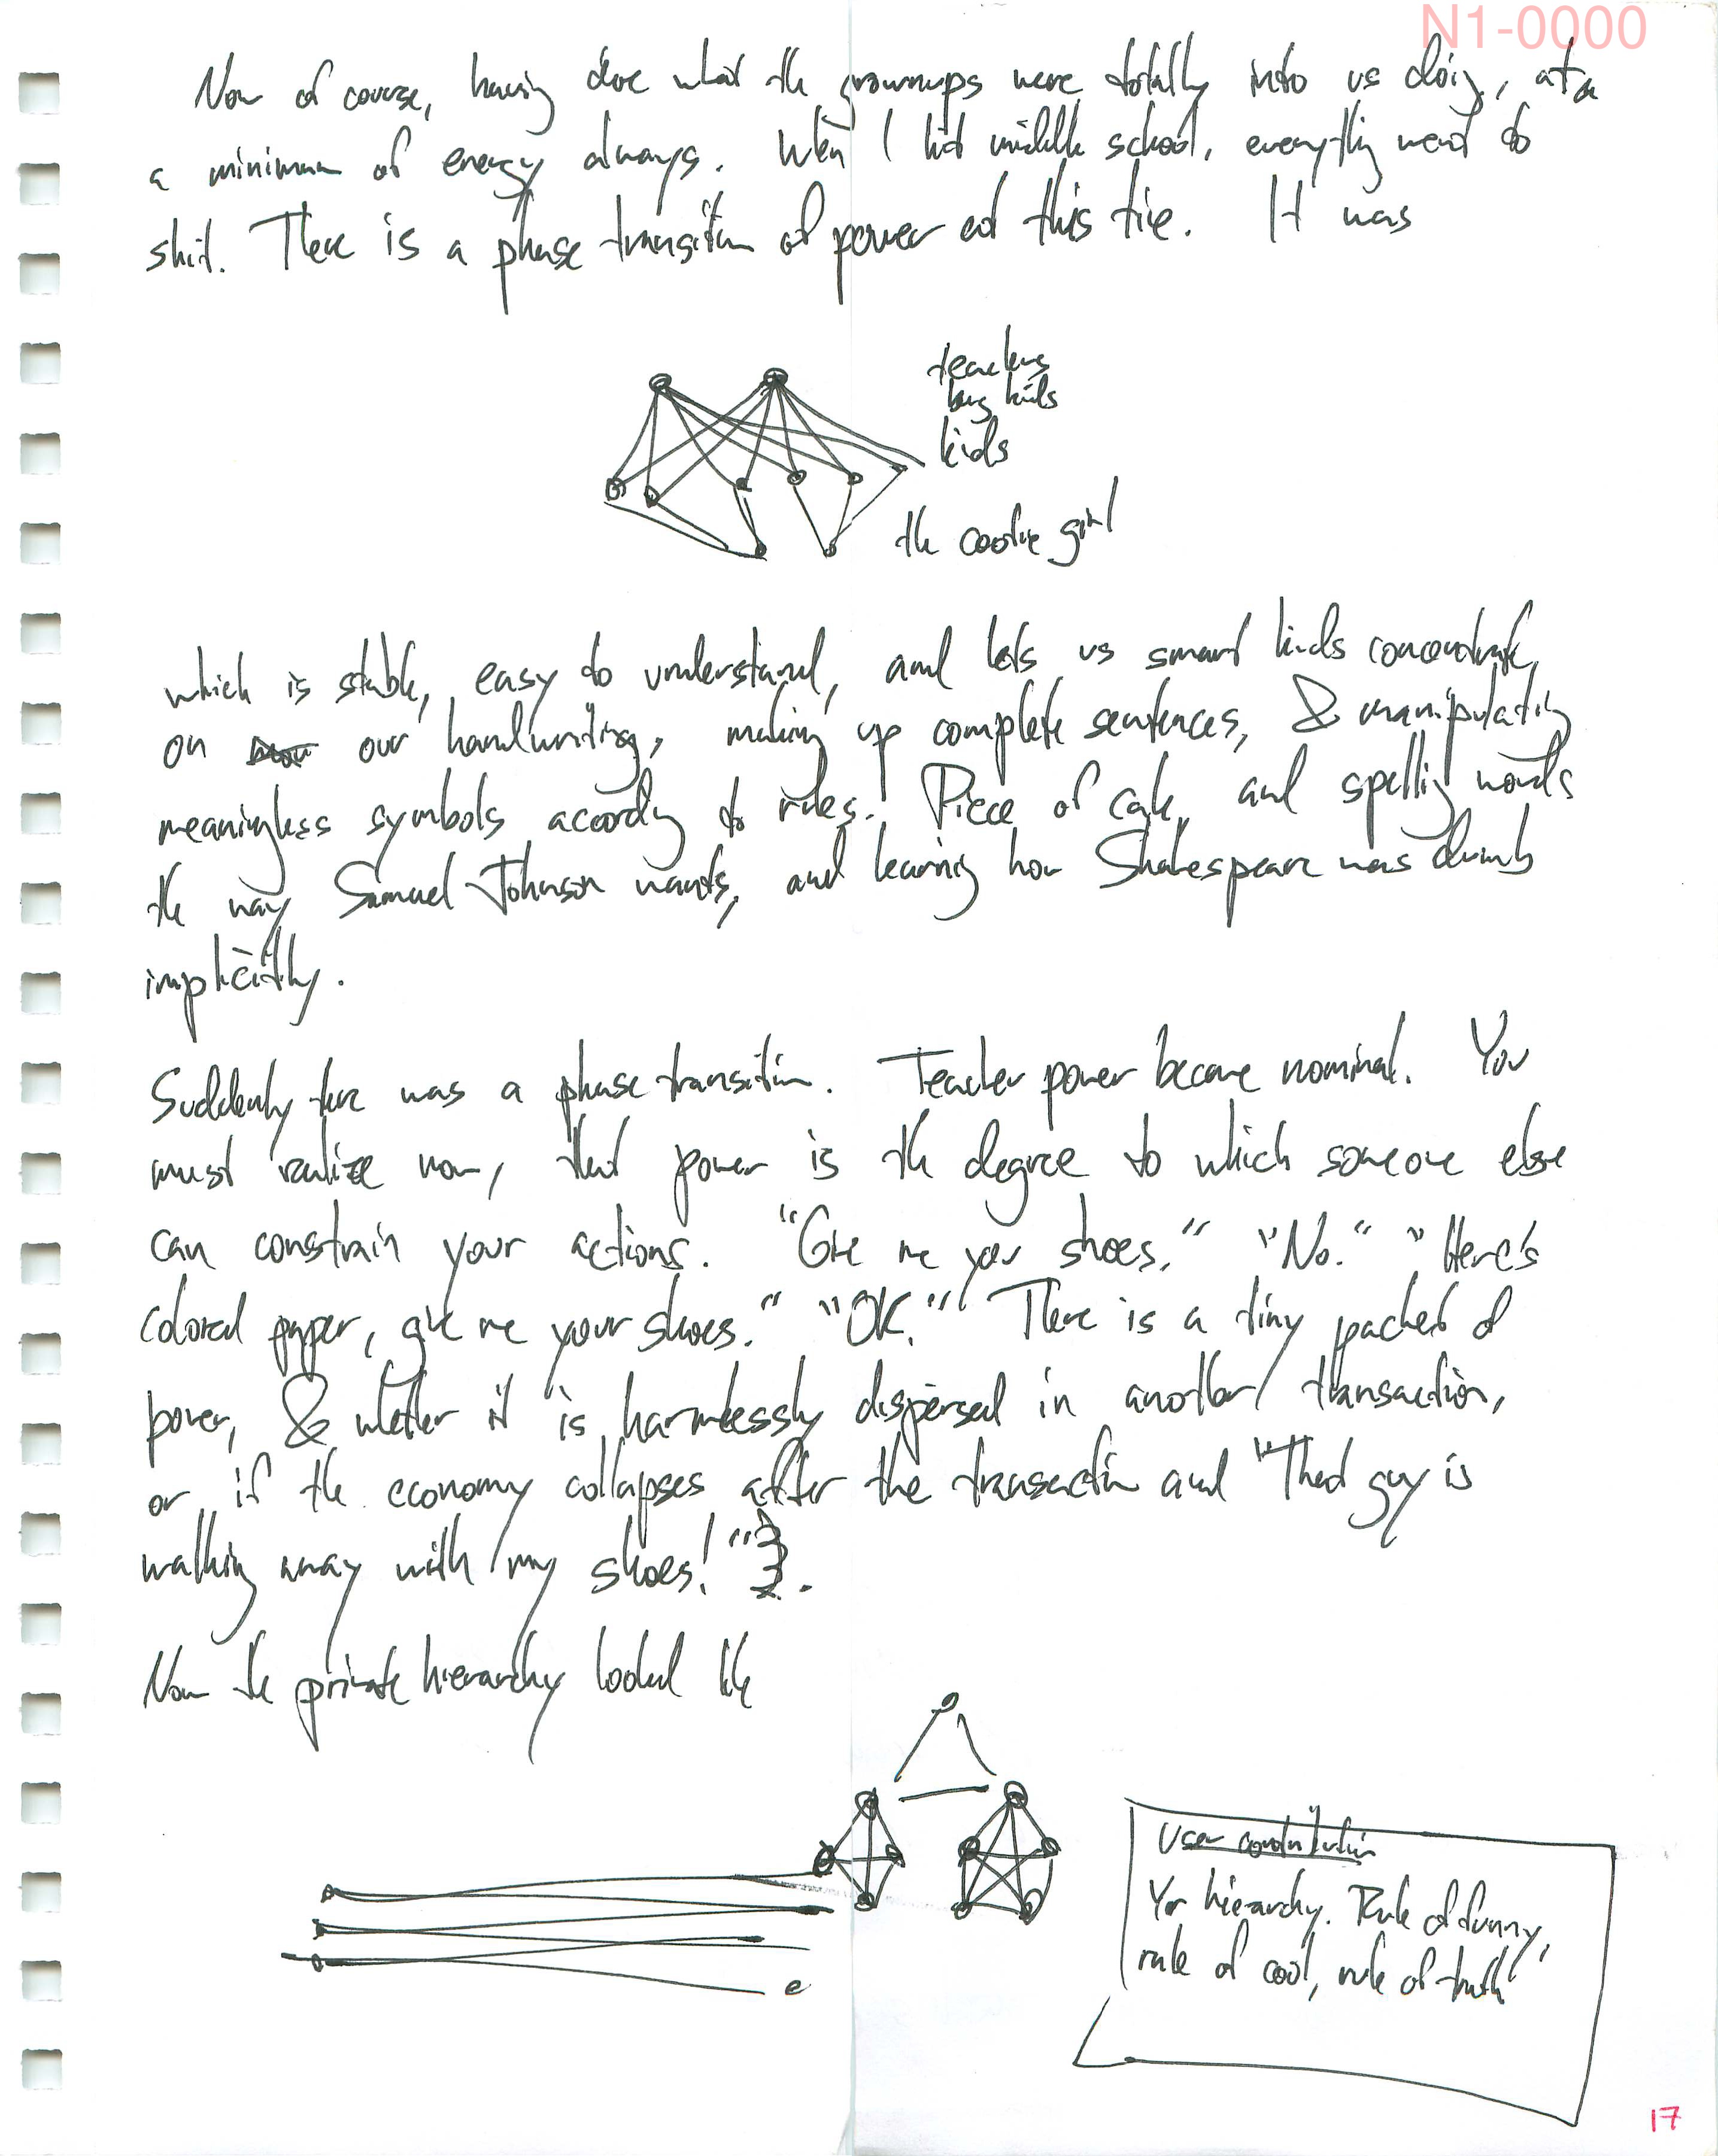 N1-0000
Now of course, having done what the grownups were totally into us doing, at a
a minimum of energy always. When I hit middle school, everything went to
shit. There is a phase transition of power at this time. It was
teachers
big kids
kids
the cootie girl
which is stable, easy to understand, and lets us smart kids concentrate
on our handwriting, making up complete sentences, & manipulating
meaningless symbols acording to rules. Piece of cake, and spelling words
the way Samuel Johnson wants, and learning how Shakespeare was dumb
implicitly.
Suddenly there was a phase transition. Teacher power became nominal. You
must realize now, that power is the degree to which someone else
can constrain your actions. "Give me your shoes." "No." "Here's
colored paper, give me your shoes." "OK." There is a tiny packet of
power, & whether it is harmlessly dispersed in another transaction,
or if the economy collapses after the transaction and "That guy is
walking away with my shoes!".
Now the private hierarchy looked like
User
Yor hierarchy. Rule of funny,
rule of cool, rule of truth"
17